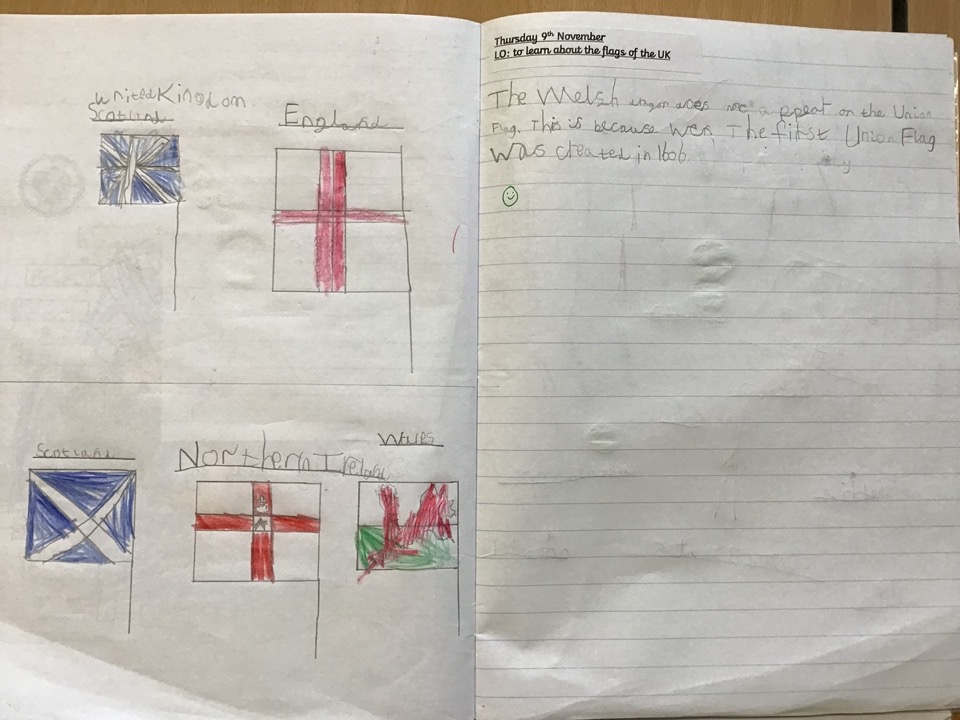 United Kingdom
Scotland
England
Scotland
Northern Ireland
Wales
Thursday 9th November
LO: to learn about the flags of the UK
The Welsh does not appeat on the Union
Flag. This is because wen The first Union Flag
was created in 1606